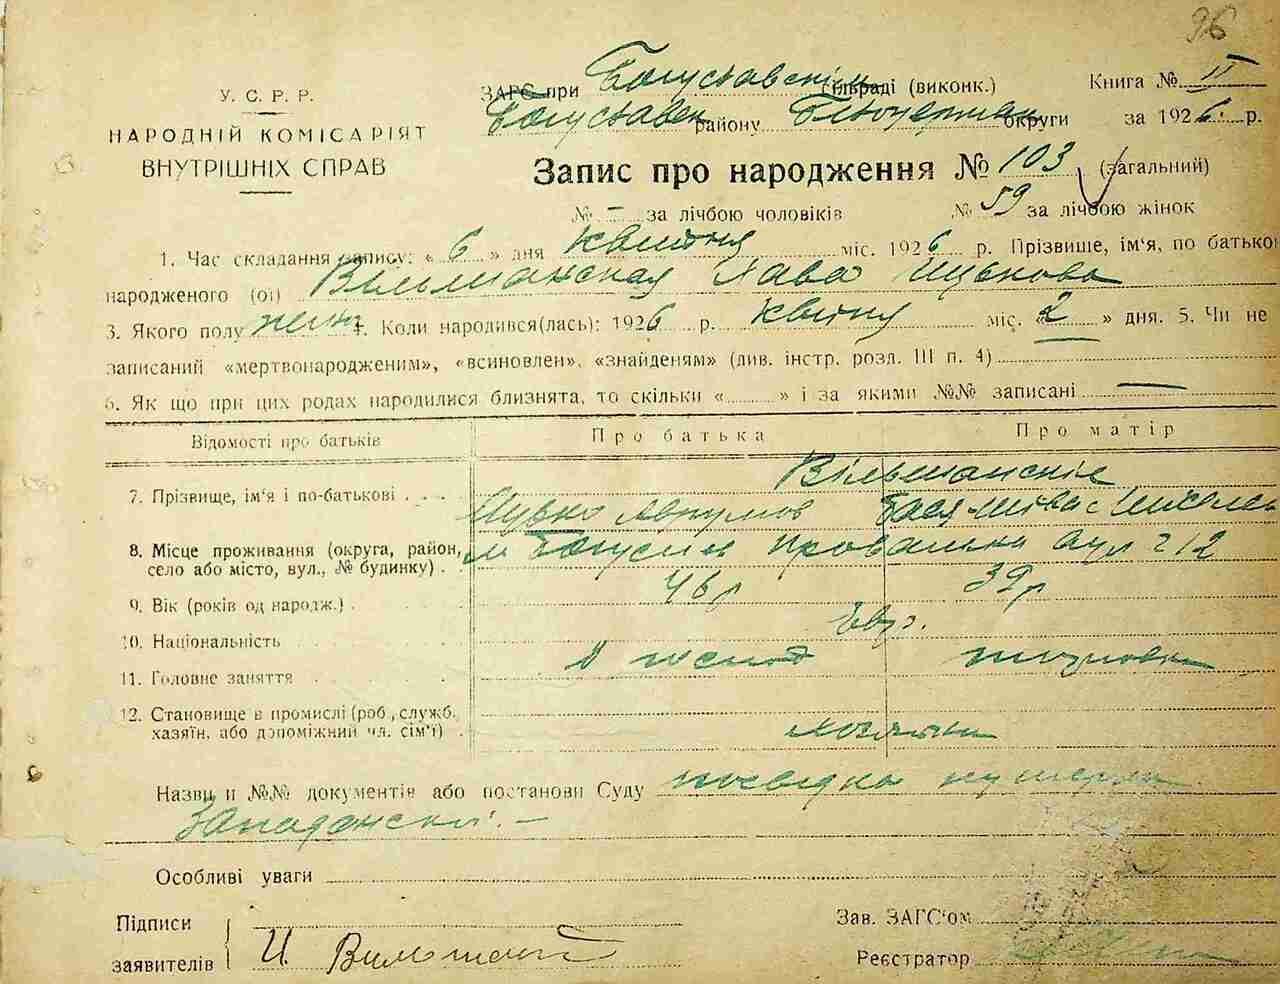 96
У. С. Р. Р.
НАРОДНІЙ КОМІСАРІЯТ
ВНУТРІШНІХ СПРАВ
ЗАГС при Богуславскім сільраді (виконк.) Книга № II
Богуславск району Білоцерківск округи за 1926 р.
Запис про народження № 103 (загальний)
№ – за лічбою чоловіків № 59 за лічбою жінок
1. Час складання запису: « 6 » дня квітня міс. 1926 р. Прізвище, ім'я, по батькові
народженого (ої) Вільшанская
3. Якого полу жін 4. Коли народився(лась): 1926 р. квітня міс. « 2 » дня. 5. Чи не
записаний «мертвонародженим», «всиновлен», «знайденям» (див. інстр. розл. III п. 4)
6. Як що при цих родах народилися близнята, то скільки « » і за якими №№ записані —
Відомості про батьків Про батька Про матір
Вільшанскіє
7. Прізвище, ім'я і по-батькові Аврумов Бася-
8. Місце проживання (округа, район, м Богуслав вул 212
село або місто, вул., № будинку)
9. Вік (років од народж.) 46 р 39 р
10. Національність Євр.
11. Головне заняття
12. Становище в промислі (роб., служб.
хазяїн, або допоміжний чл. сім'ї)
Назви и №№ документів або постанови Суду посвідка
Особливі уваги
Підписи Зав. ЗАГС'ом
заявителів И. Реєстратор